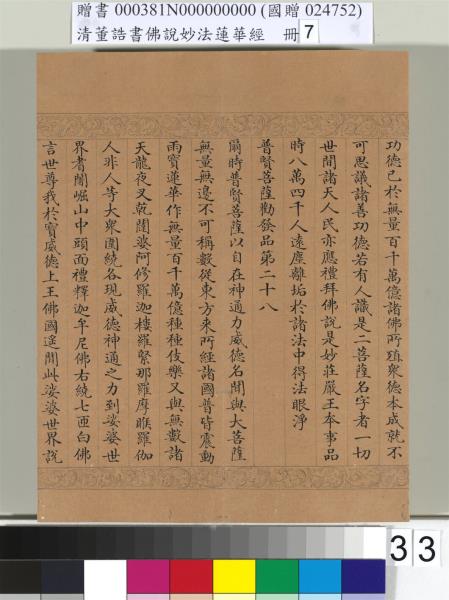 贈書 000381N000000000 (國贈 024752)
清董誥書佛說妙法蓮華經 冊 7
功德已於無量百千萬億諸佛所殖眾德本成就不
可思議諸善功德若有人識是二菩薩名字者一切
世間諸天人民亦應禮拜佛說是妙莊嚴王本事品
時八萬四千人遠塵離垢於諸法中得法眼淨
普賢菩薩勸發品第二十八
爾時普賢菩薩以自在神通力威德名聞與大菩薩
無量無邊不可稱數從東方來所經諸國普皆震動
雨寶蓮華作無量百千萬億種種伎樂又與無數諸
天龍夜叉乾闥婆阿修羅迦樓羅緊那羅摩睺羅伽
人非人等大眾圍繞各現威德神通之力到娑婆世
界耆闍崛山中頭面禮釋迦牟尼佛右繞七匝白佛
言世尊我於寶威德上王佛國遙聞此娑婆世界說
33